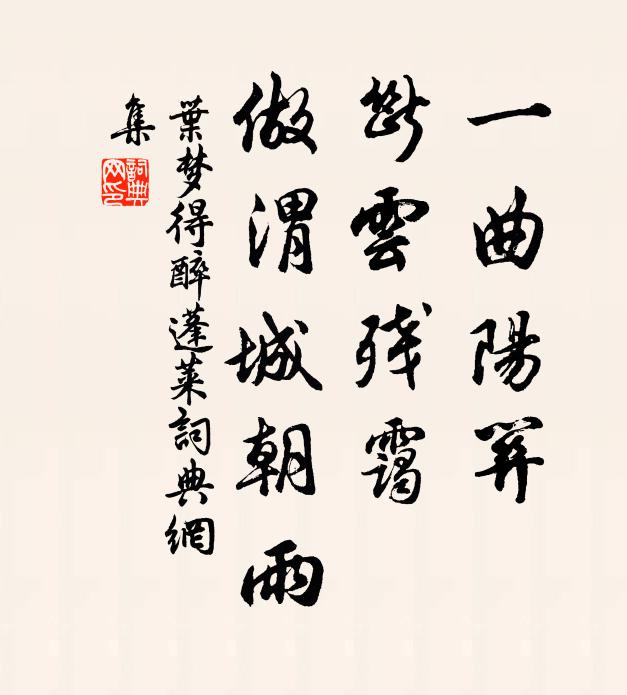 一曲陽關
斷雲残靄
做渭城朝雨
葉梦得醉蓬萊詞典網
集
詞典网印